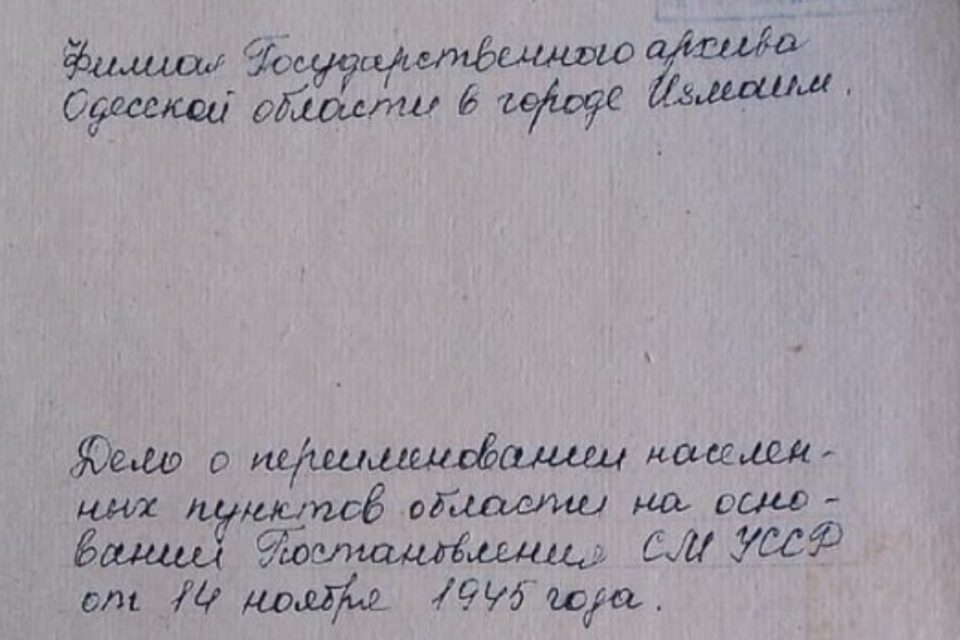 Филиал Государственного архива
Одесской области в городе Измаил.
Дело о переименовании населен-
ных пунктов области на осно-
вании Постановления СМ УССР
от 14 ноября 1945 года.